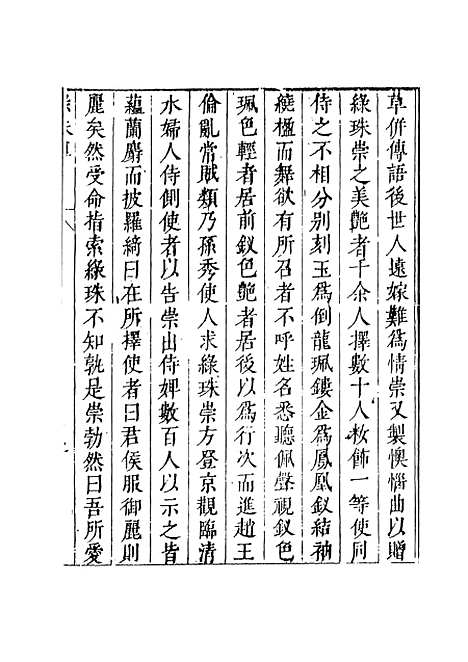 草併傳語後世人遠嫁難爲情崇又製懊惱曲以贈
綠珠崇之美艶者千余人擇數十人妝飾一等使同
侍之不相分别刻玉爲倒龍珮鏤金爲鳳凰釵結袖
繞楹而舞欲有所召者不呼姓名悉聽佩聲視釵色
珮色輕者居前釵色艶者居後以爲行次而進趙王
倫亂常賊類乃孫秀使人求綠珠崇方登京觀臨清
水婦人侍側使者以告崇出侍婢數百人以示之皆
蘊蘭麝而披羅綺曰在所擇使者曰君侯服御麗則
麗矣然受命指索綠珠不知孰是崇勃然曰吾所愛